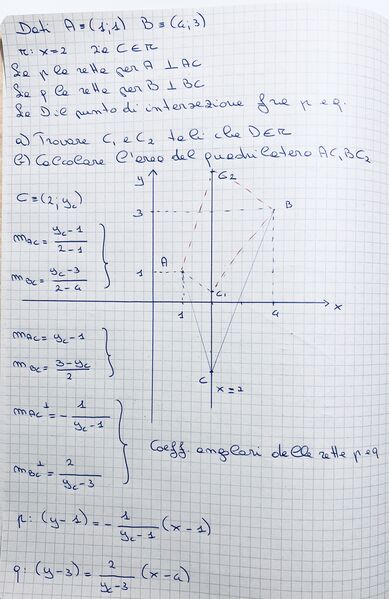 Dati A≡(1;1) B≡(4,3)
r: x=2 sia C∈r
Sia p la retta per A ⊥ AC
Sia q la retta per B ⊥ BC
Sia D il punto di intersezione fra p e q.
a) Trovare C₁ e C₂ tali che D∈r
b) Calcolare l'area del quadrilatero AC₁BC₂
C≡(2; y_C)
m_AC = (y_C-1)/(2-1)
m_BC = (y_C-3)/(2-4)
y
C₂
3
B
A
1
C₁
1
4
x
C
x=2
m_AC = y_C-1
m_BC = (3-y_C)/2
m_AC^⊥ = -1/(y_C-1)
m_BC^⊥ = 2/(y_C-3)
Coeff. angolari delle rette p e q
p: (y-1) = -1/(y_C-1) (x-1)
q: (y-3) = 2/(y_C-3) (x-4)